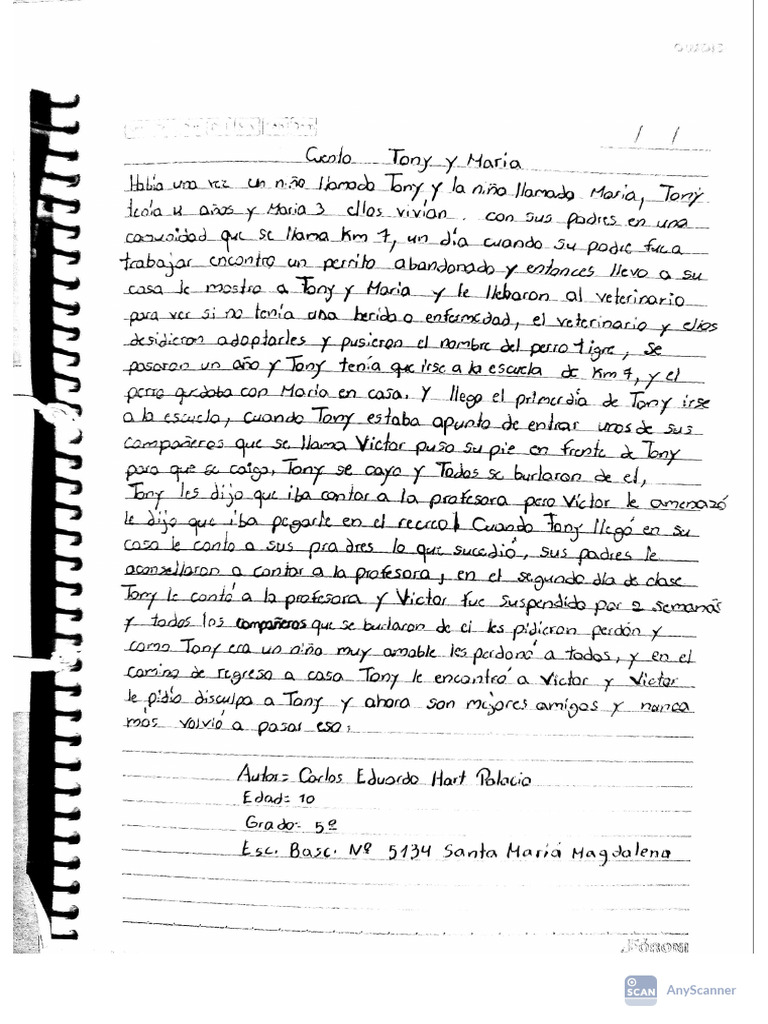 / /
Cuento Tony y Maria
Había una vez un niño llamado Tony y la niña llamada Maria, Tony
tenía 4 años y Maria 3 ellos vivían. con sus padres en una
comunidad que se llama Km 7, un día cuando su padre fue a
trabajar encontro un perrito abandonado y entonces llevo a su
casa le mostro a Tony y Maria y le llebaron al veterinario
para ver si no tenía una herida o enfermedad, el veterinario y ellos
desidieron adoptarles y pusieron el nombre del perro tigre, se
pasaron un año y Tony tenía que irse a la escuela de Km 7, y el
perro quedaba con Maria en casa. Y llego el primer día de Tony irse
a la escuela, cuando Tony estaba apunto de entrar unos de sus
compañeros que se llama Victor puso su pie en frente de Tony
para que se caiga, Tony se cayo y Todos se burlaron de el,
Tony les dijo que iba contar a la profesora pero Victor le amenazó
le dijo que iba pegarle en el recreo! Cuando Tony llegó en su
casa le conto a sus pradres lo que sucedió, sus padres le
aconsellaron a contar a la profesora, en el segundo día de clase
Tony le contó a la profesora y Victor fue suspendido por 2 semanas
y todos los compañeros que se burlaron de el les pidieron perdón y
como Tony era un niño muy amable les perdonó a todos, y en el
camino de regreso a casa Tony le encontró a Victor y Victor
le pidio disculpa a Tony y ahora son mejores amigos y nunca
más volvió a pasar eso.
Autor= Carlos Eduardo Hart Palacio
Edad= 10
Grado= 5º
Esc. Basc. Nº 5134 Santa María Magdalena
SCAN AnyScanner